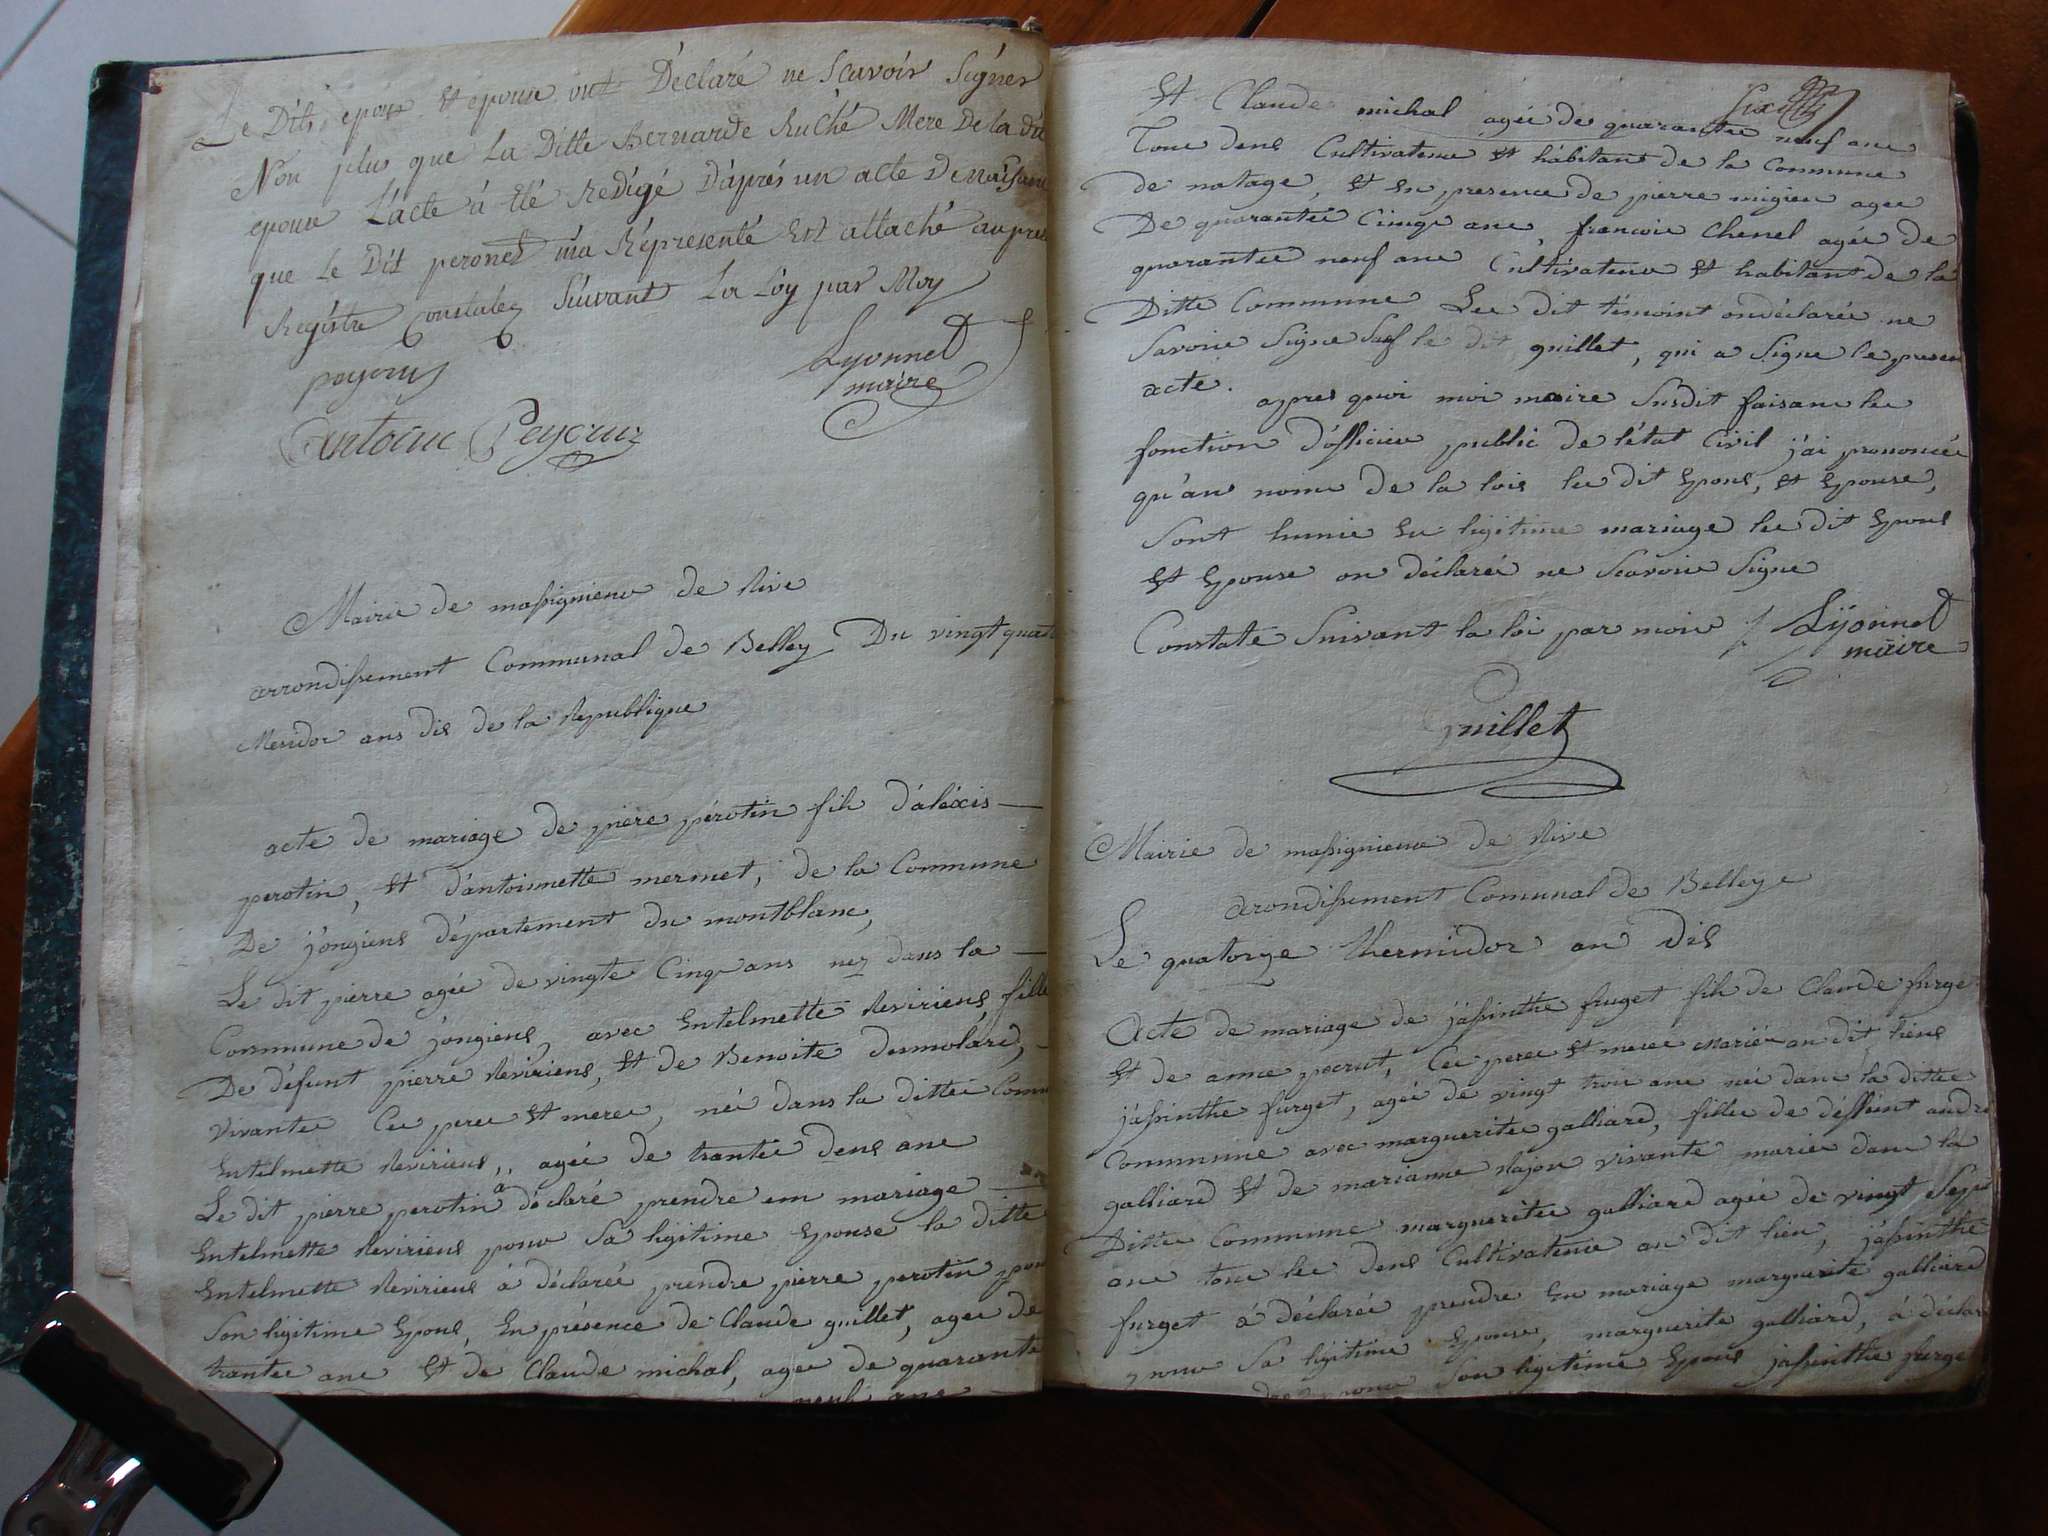 Le Dits epoux Et epouse ont Déclaré ne Scavoir Signer
Non plus que La Ditte Bernarde Ruché Mere De la du
epouse L'acte à Eté Redigé D'aprés un acte De Naisan
que Le Dit peronet m'a Répresenté Est attaché aupres
Registre Constatez Suivant La Loy par Moy
Lyonnet
maire
peycruz
Antoine Peycruz
Mairie de massignieux de Rive
arrondissement Communal de Belley Du vingt quat
Messidor ans dis de la Republique
acte de mariage de piere pérotin fils d'aléxis
perotin, Et d'antoinnette mermet, de la Commune
De jongiens département du montblanc,
Le dit pierre agée de vingte Cinq ans nez dans la
Commune de jongiens, avec Entelmette Reviriens, fille
De défunt pierre Reviriens, Et de Benoite desmolard,
vivante Ces peres Et meres, née dans la dittée Comm
Entelmette Reviriens,, agée de trantée deus ans
Le dit pierre perotin a déclaré prendre em mariage
Entelmette Reviriens pour Sa ligitime Epouse la ditte
Entelmette Reviriens à déclarée prendre pierre perotin pour
Son ligitime Epous, En présence de Claude guillet, agee de
trantee ans Et de Claude michal, agee de quarante
neuf ans
Sixcette
Et Claude michal agée de quarantee neuf ans
Tous deus Cultivateur Et habitant de la Commune
de natage, Et En presence de pierre migieu agee
De quarantée Cinqe ans, francois Chenel agée de
quarantée neuf ans Cultivateur Et habitant de la
Ditte Commune Les dit témoint ondéclarée ne
Savoire Signe Sauf le dit guillet, qui a Signe le presen
acte. apres quoi moi maire Susdit faisans les
fonction d'officier public de l'état Civil j'ai prononcée
qu'au nome de la lois les dit Epous, Et Epouse,
Sont hunie En ligitime mariage les dit Epous
Et Epouse on déclarée ne Scavoir Signe
Constaté Suivant la loi par moi Lÿonnet
maire
Guillet
Mairie de massignieux de Rive
arondissement Comunal de Belleye
Le quatorze thermidor an dis
Acte de mariage de jassinthe furget fils de Claude furge
Et de anne pecrut, Ces peres Et meres mariée au dit liens
jassinthe furget, agée de vingt trois ans née dans la dittee
Commune avec margueritee galliard, filles de défféint andre
galliard Et de marianne Rajou vivante mariee dans la
Dittée Commune margueritee galliard agée de vingt Sept
ans tous les deus Cultivateure au dit lieu, jassinthe
furget à déclarée prendre En mariage marguerite galliard
pour Sa ligitime Epouse, marguerite galliard, à déclar
pour Son ligitime Epous jassinthe furge